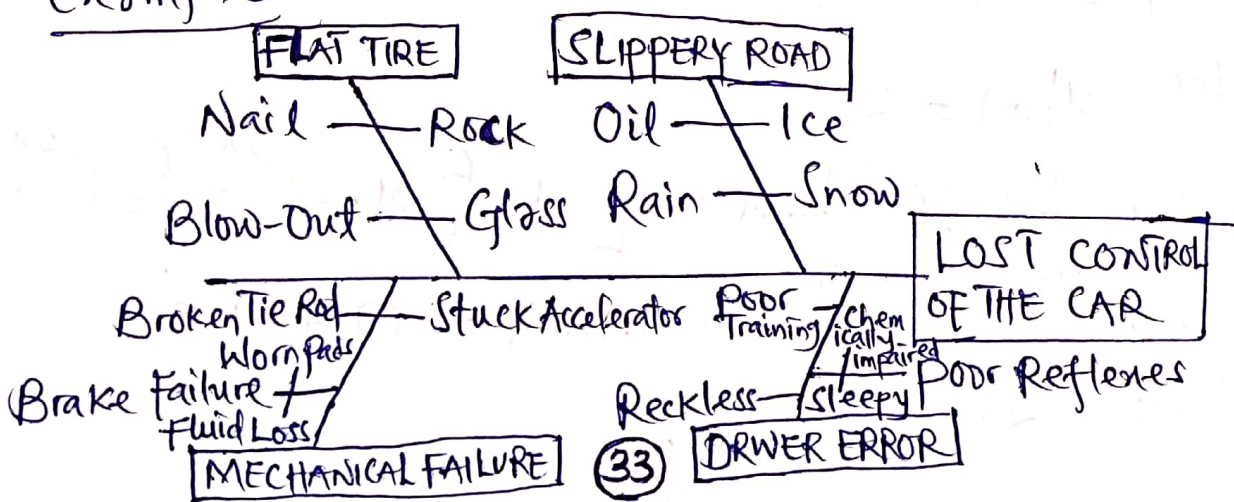 Example
FLAT TIRE SLIPPERY ROAD
Nail Rock Oil Ice
Blow-Out Glass Rain Snow
LOST CONTROL
OF THE CAR
Broken Tie Rod Stuck Accelerator Poor
Training Chem
ically
impaired
Worn Pads
Brake Failure
Fluid Loss
Poor Reflexes
Reckless Sleepy
MECHANICAL FAILURE 33 DRWER ERROR